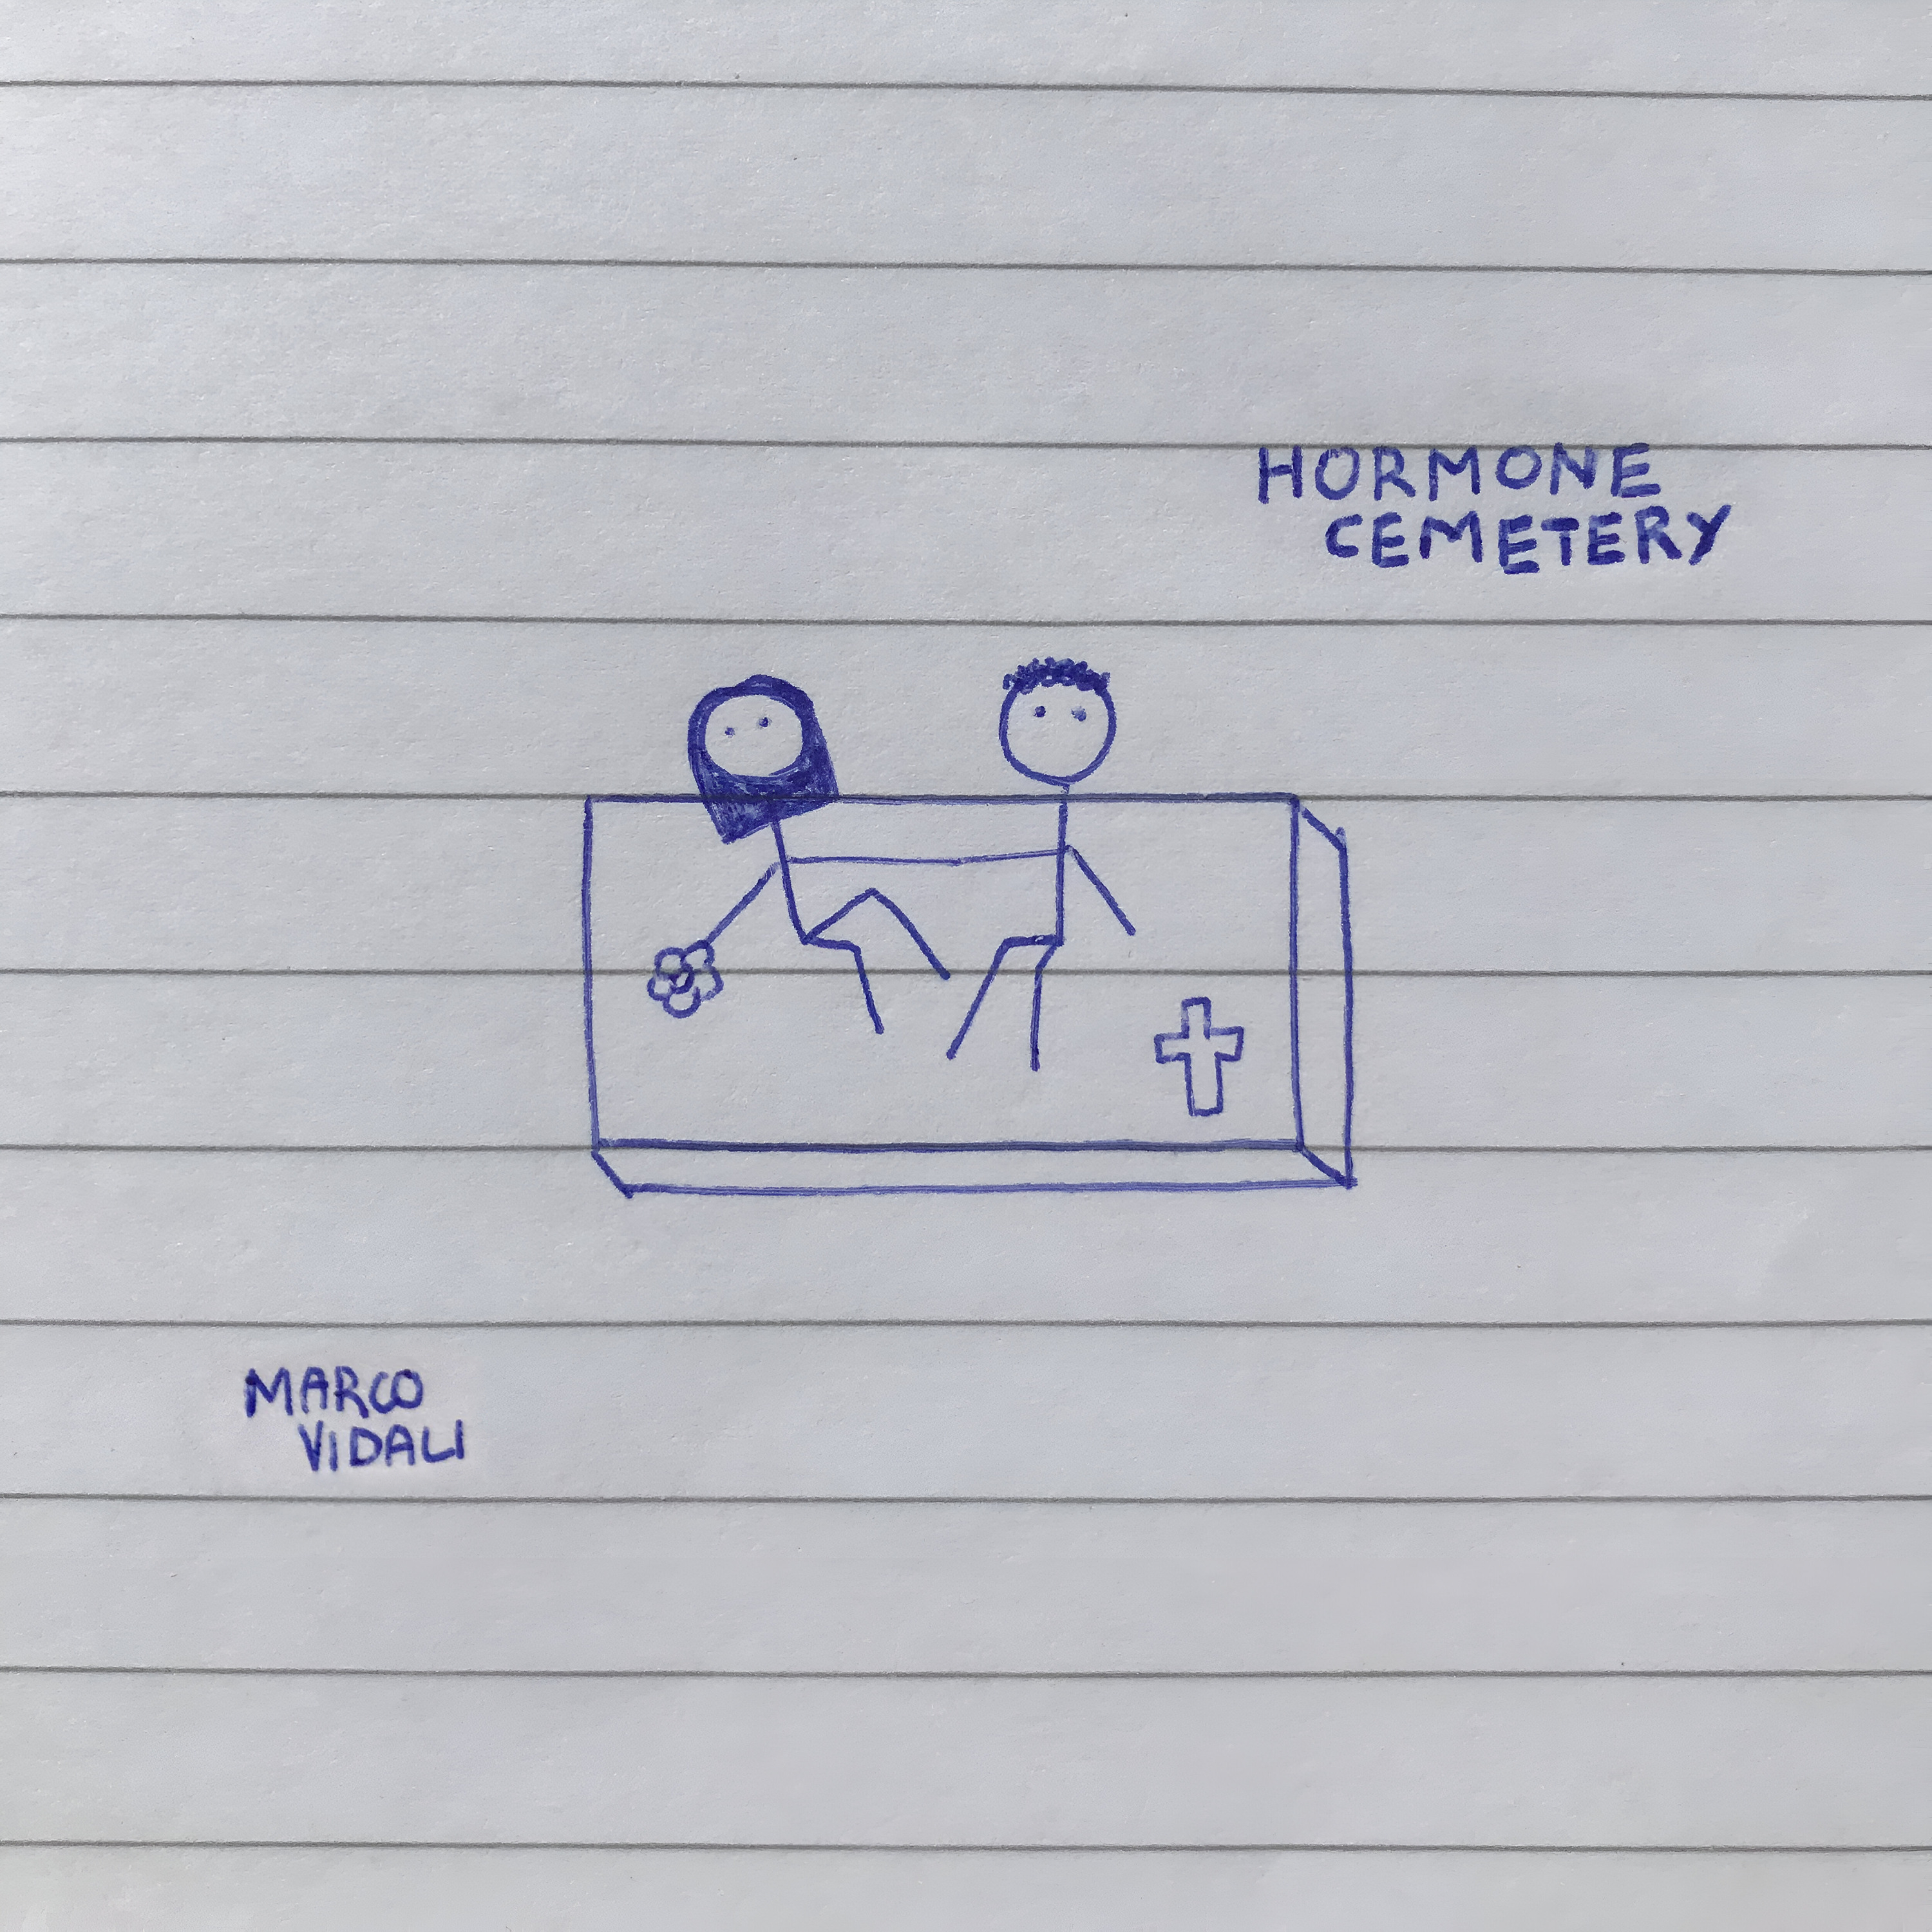 HORMONE
CEMETERY
MARCO
VIDALI